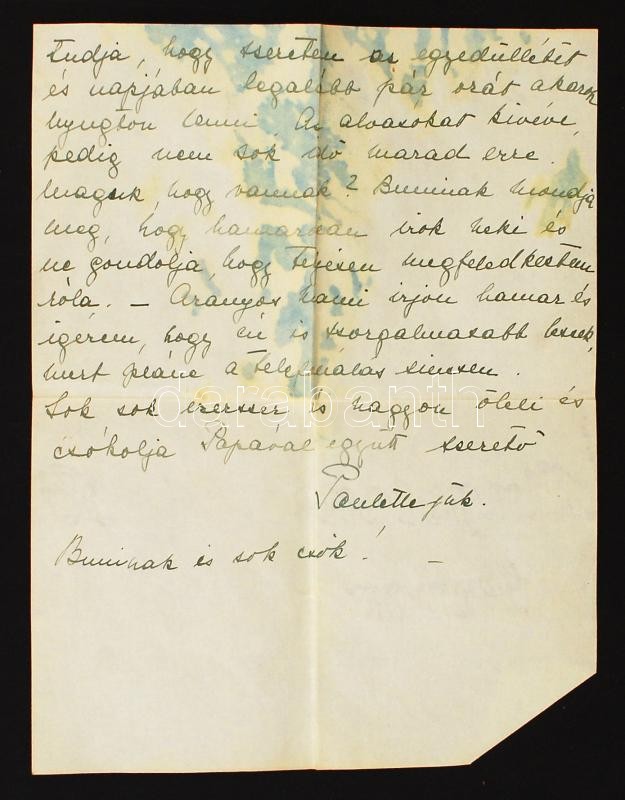 Tudja, hogy szeretem az egyedüllétet
és napjában legalább pár órát akarok
nyugton lenni, Az alvásokat kivéve,
pedig nem sok idő marad erre.
Maguk hogy vannak? Buminak mondja
meg, hogy hamarosan irok neki és
ne gondolja, hogy teljesen megfeledkeztem
róla. – Aranyos Mami irjon hamar és
igérem, hogy én is szorgalmasabb leszek,
mert pláne a
Sok sok ezerszer is nagyon öleli és
csókolja Papával együtt szerető
Paulettejük.
Buminak is sok csók! –
darabanth